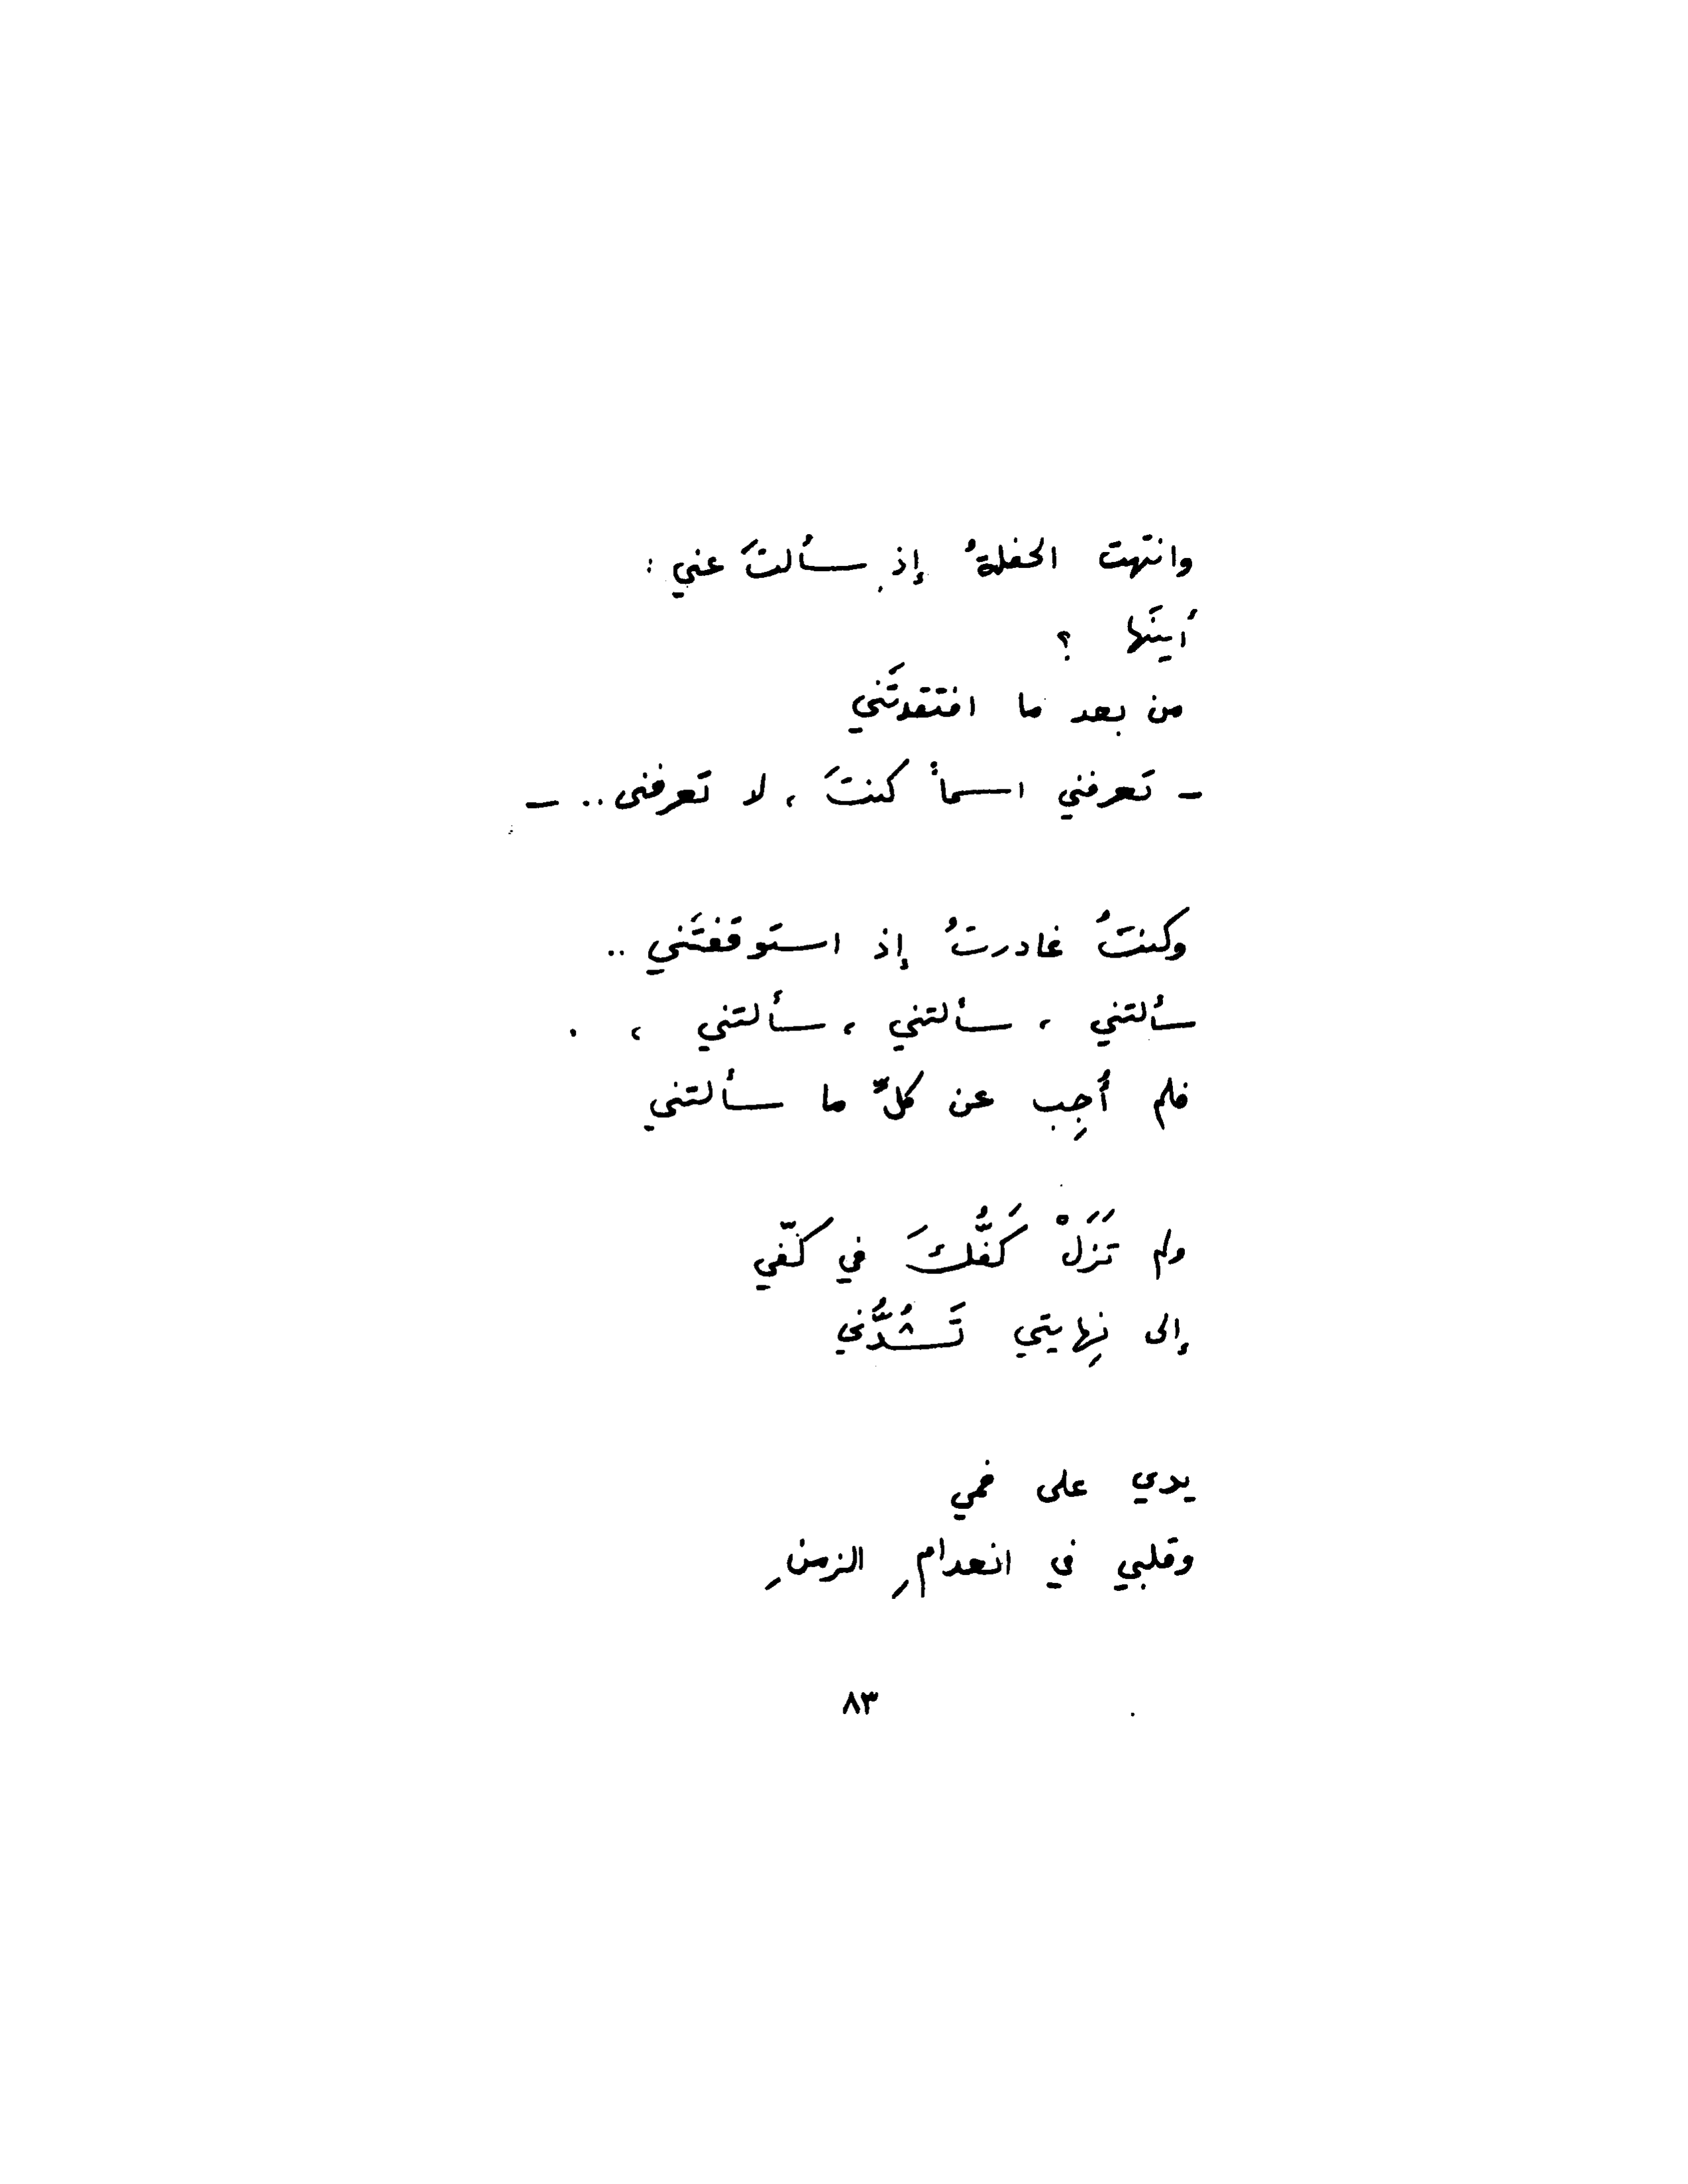 وانتهت الحفلةُ إذ سألتَ عني :
أينَها ؟
من بعد ما افتقدتَني
– تعرفني اسماً كنتَ ، لا تعرفني .. –
وكنتُ غادرتُ إذ استوقفتَني ..
سألتني ، سألتني ، سألتني ، .
فلم أُجِب عن كلّ ما سألتني
ولم تَزَلْ كَفُّكَ في كفّي
إلى نِهايتي تَشُدُّني
يدي على فمي
وقلبي في انعدامِ الزمنِ
٨٣